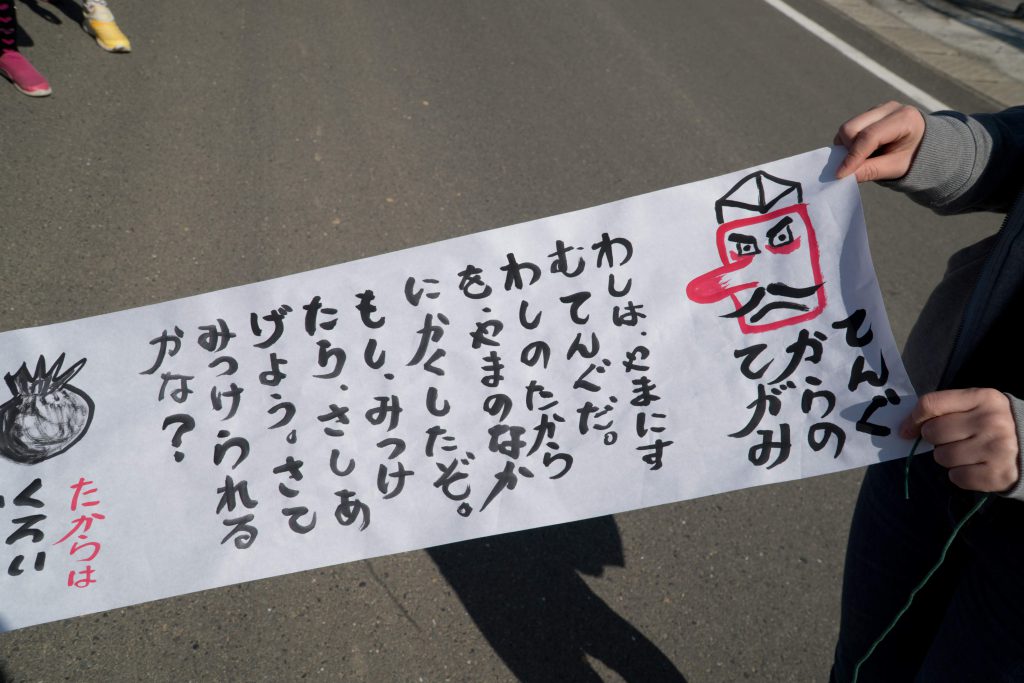 てんぐ
からの
てがみ
わしは、やまにす
むてんぐだ。
わしのたから
を、やまのなか
にかくしたぞ。
もし、みつけ
たら、さしあ
げよう。さて
みつけられる
かな？
たからは
くろい